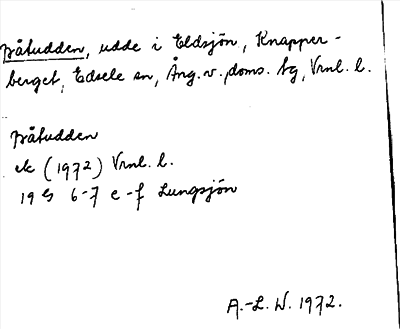 Tråtudden, udde i Eldsjön, Knapper-
berget, Edsele sn, Ång. v., doms. tg, Vrnl. l.
Tråtudden
ek (1972) Vrnl. l.
19 G 6-7 e-f Lungsjön
A.-L. W. 1972.